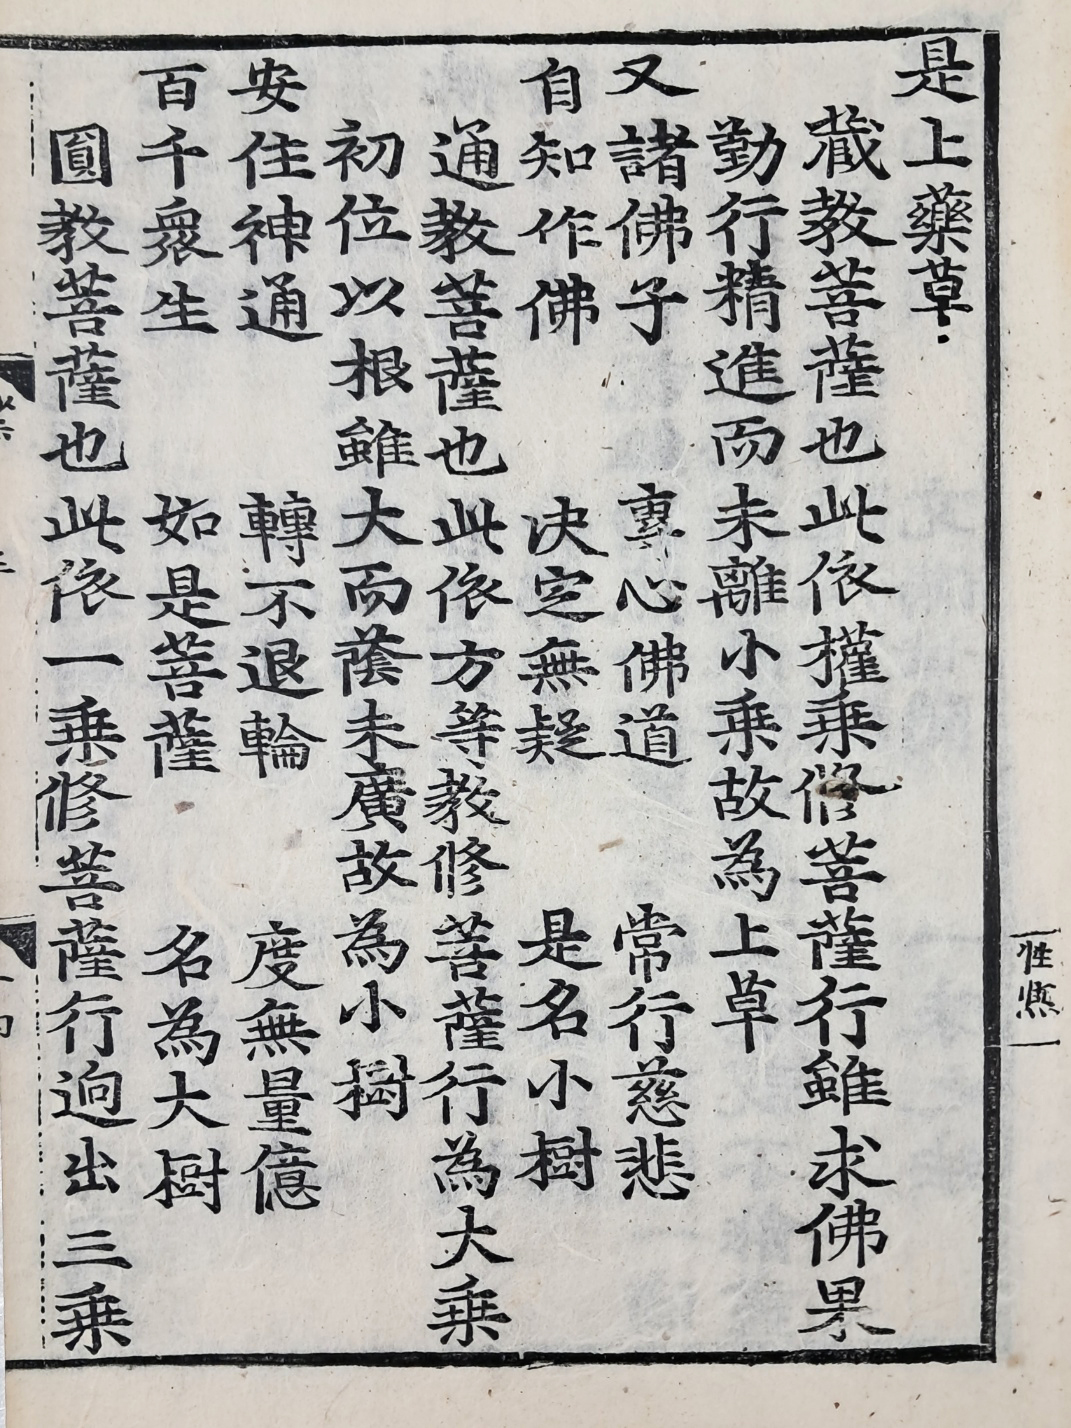 是上藥草
藏教菩薩也此依權乗修菩薩行雖求佛果
勤行精進而未離小乗故為上草
又諸佛子　專心佛道　常行慈悲
自知作佛　决定無疑　是名小樹
通教菩薩也此依方等教修菩薩行為大乗
初位以根雖大而蔭未廣故為小樹
安住神通　轉不退輪　度無量億
百千衆生　如是菩薩　名為大樹
圓教菩薩也此依一乗修菩薩行逈出三乗
性熈